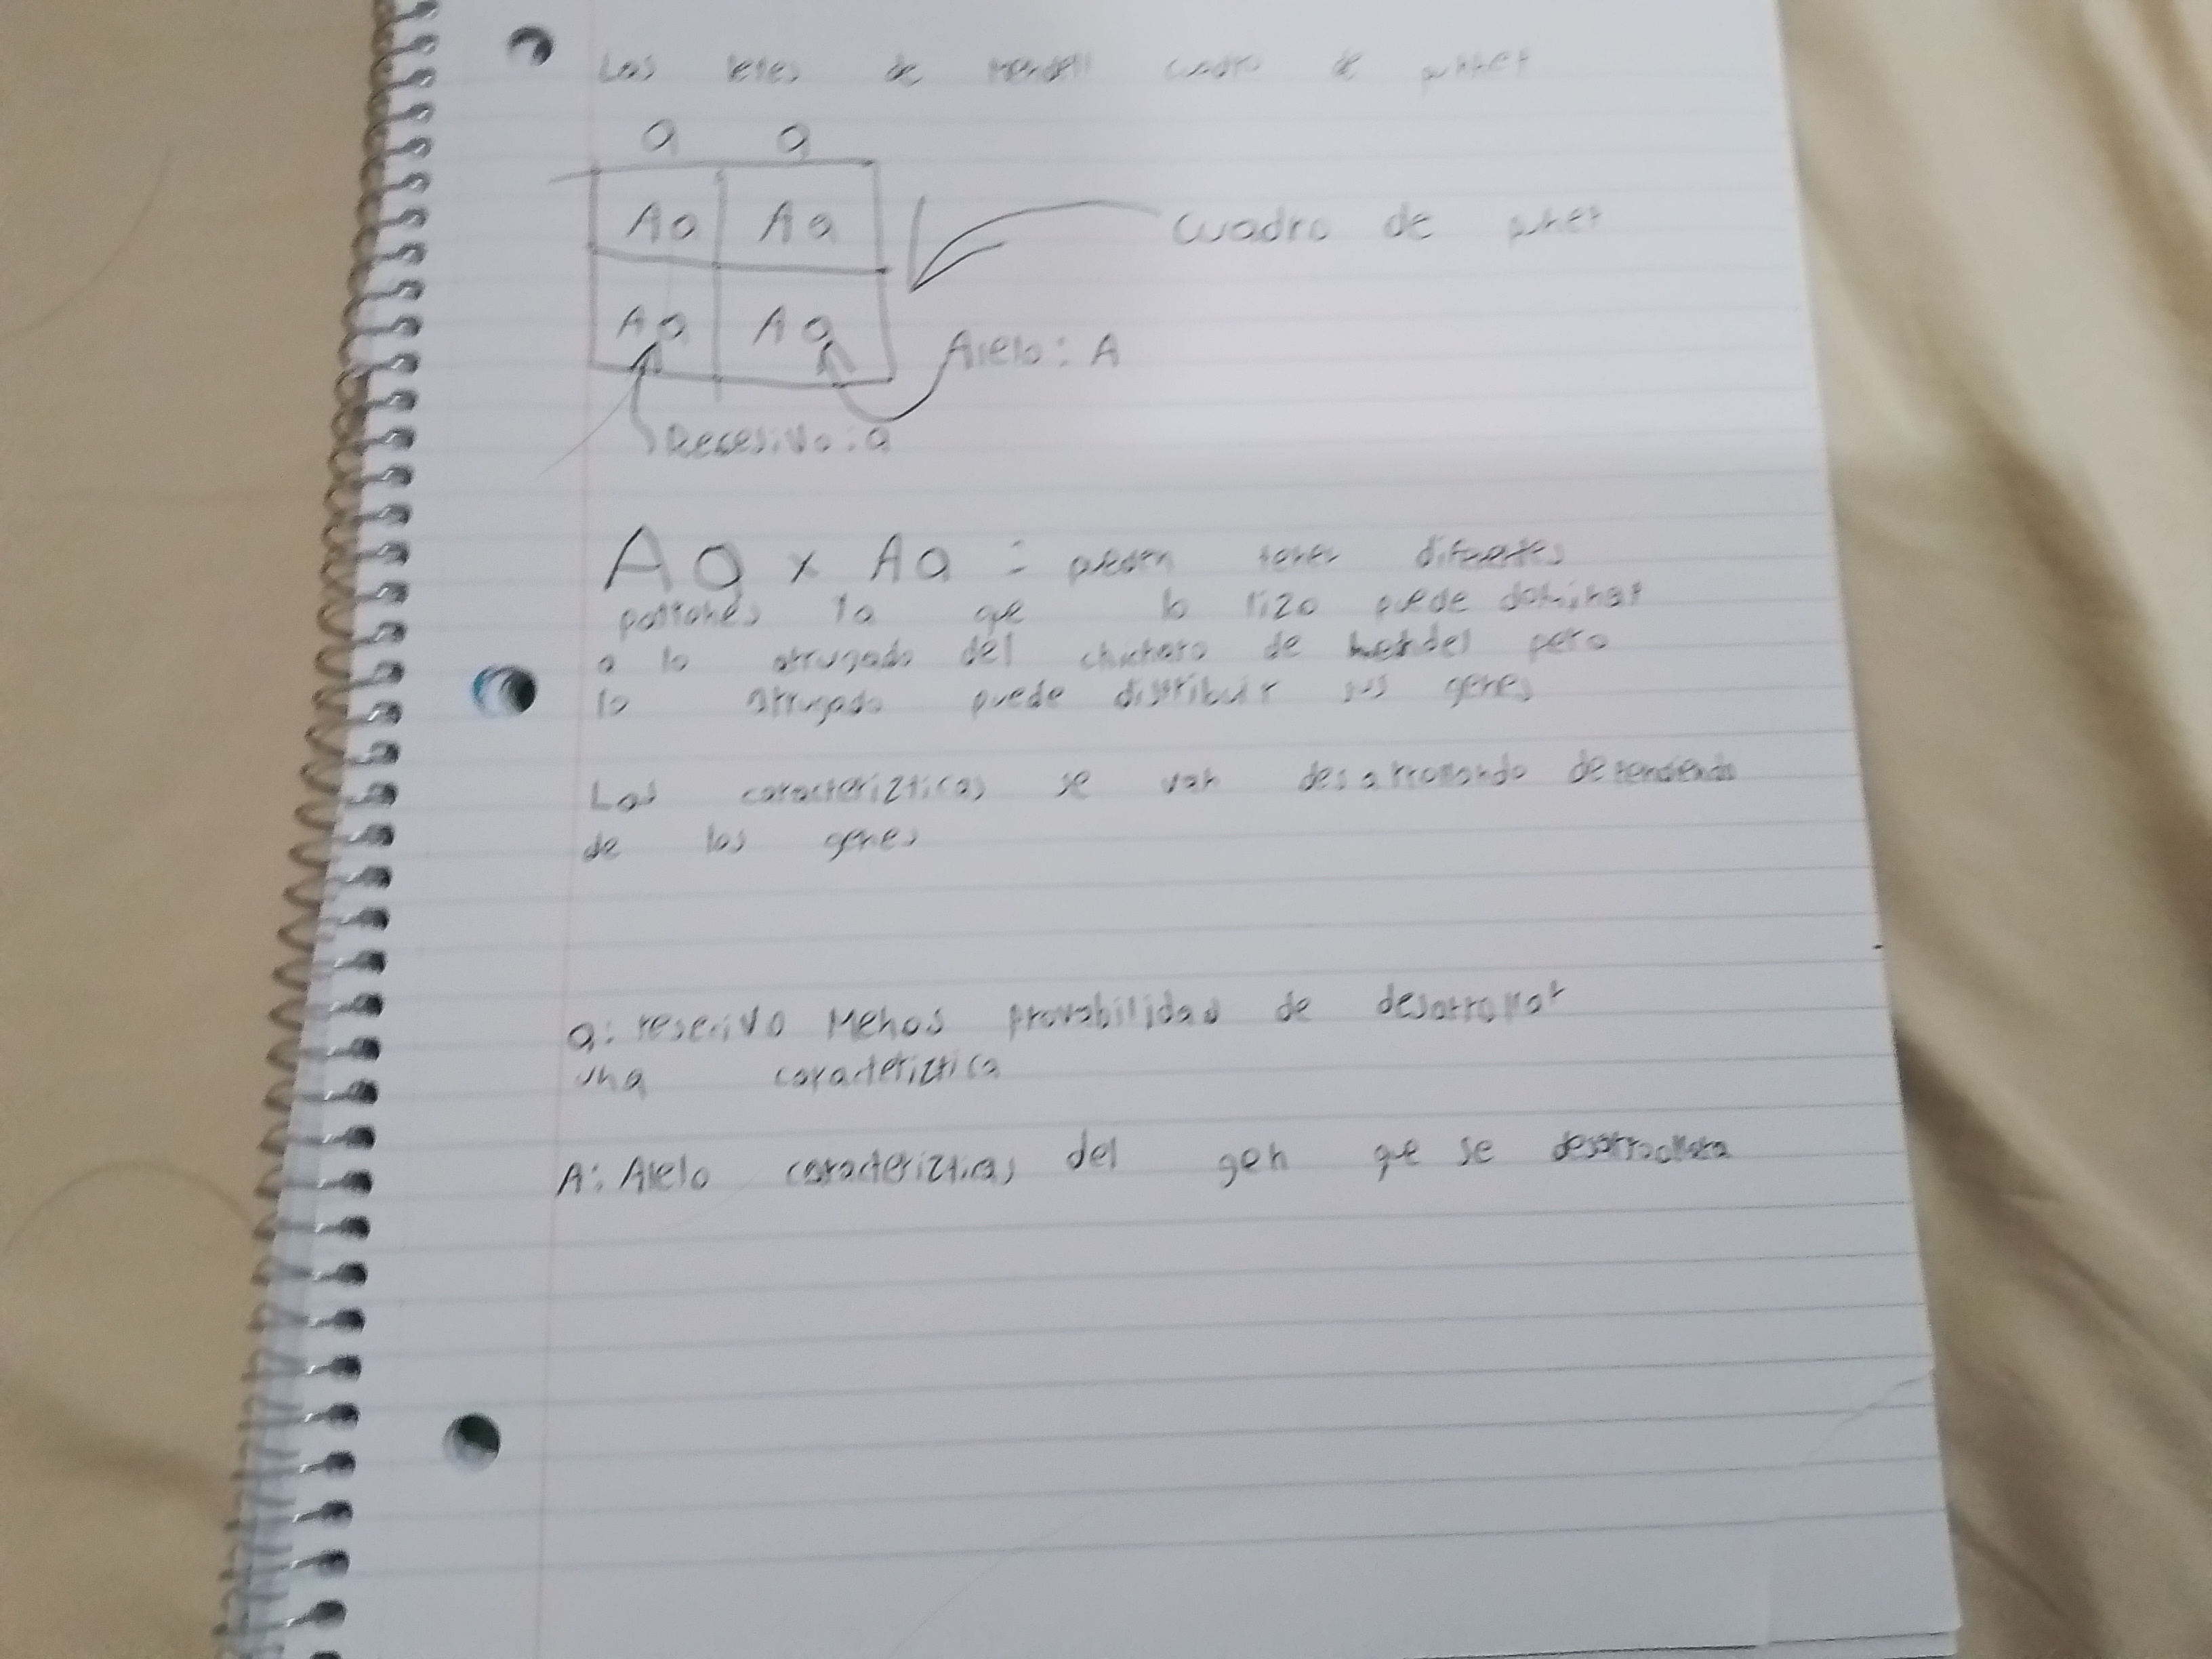 Las leyes de Mendell cuadro de punnet
a a
Aa Aa
Cuadro de punet
Aa Aa
Alelo: A
Recesivo: a
Aa x Aa = pueden tener diferentes
patrones la que lo lizo puede dominar
a lo arrugado del chicharo de mendel pero
lo arrugado puede distribuir sus genes
Las caracterizticas se van desarrollando dependiendo
de los genes
a: resesivo Menos provabilidad de desarrollar
una caracteriztica
A: Alelo caracterizticas del gen que se desarrollara